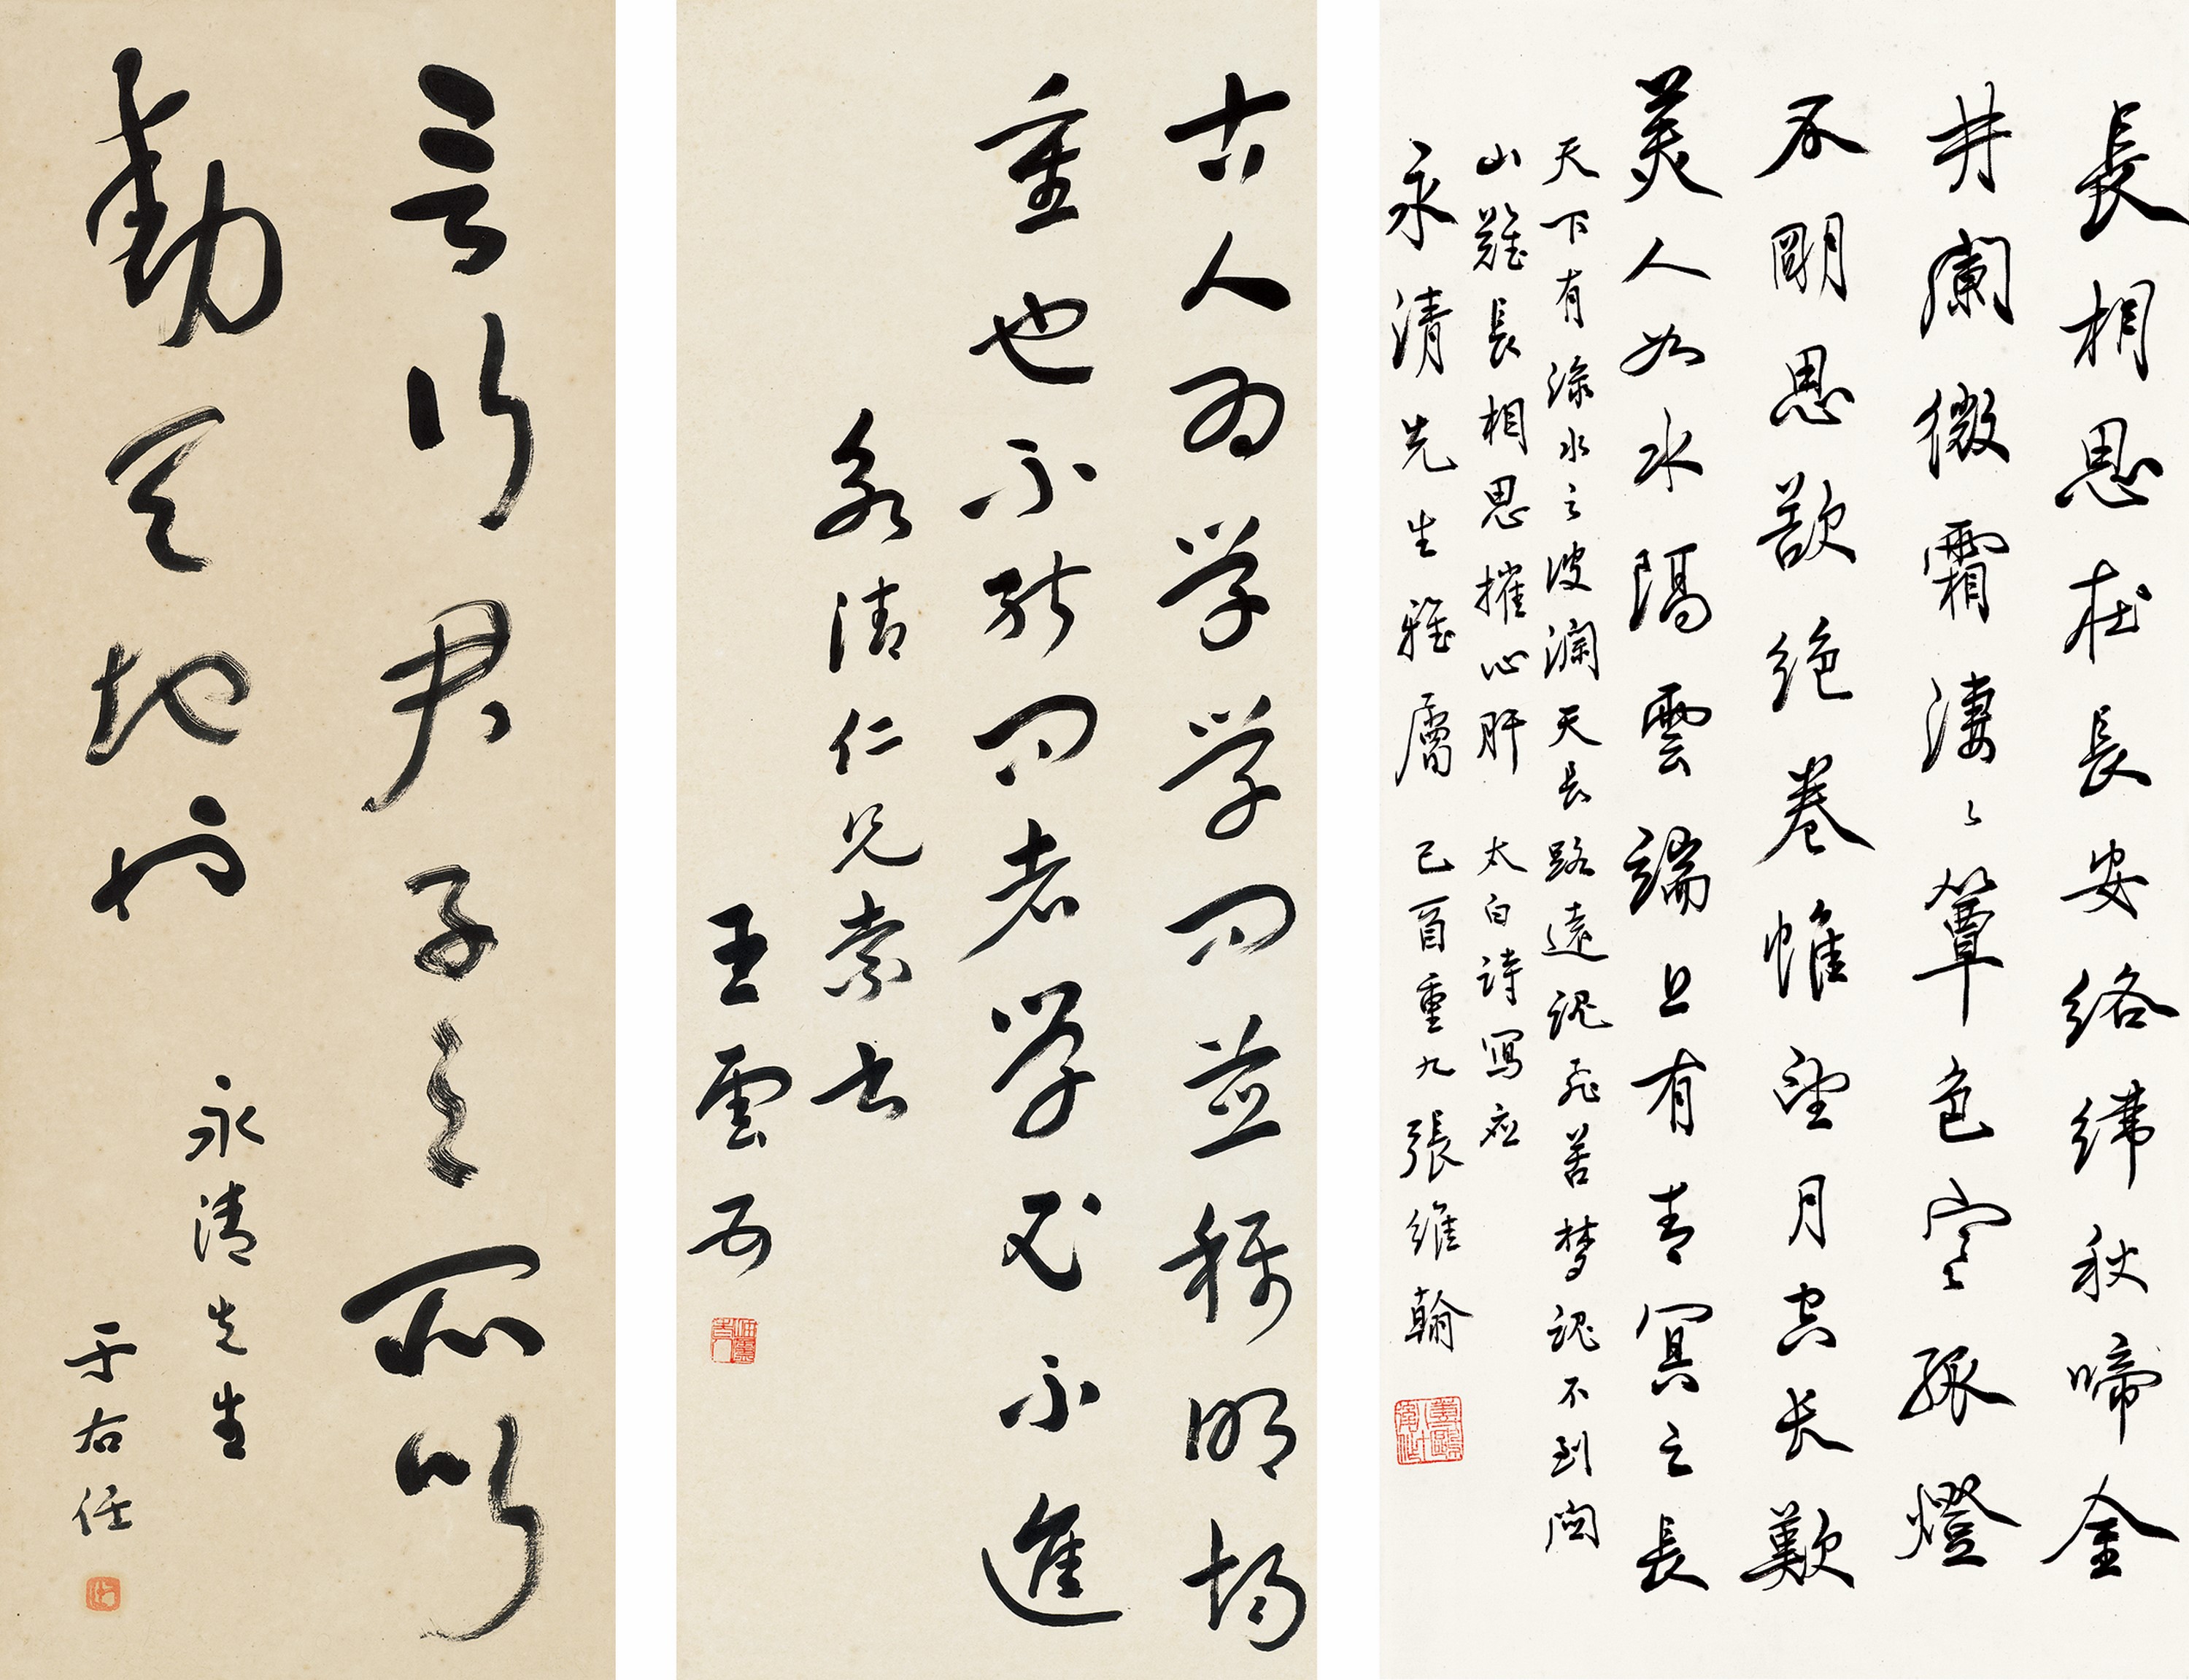 長相思在長安絡緯秋啼金
井闌微霜淒〻簟色寒孤燈
不明思欲絕卷帷望月空長歎
美人如水隔雲端上有青冥之長
天下有淥水之波瀾天長路遠魂飛苦夢魂不到關
山難長相思摧心肝 太白詩寫應
永清先生雅屬 己酉重九張維翰
古人为学学问並稱明均
重也不能问者学必不進
永清仁兄索书
王雲五
言行君子之所以
動天地也
永清先生
于右任